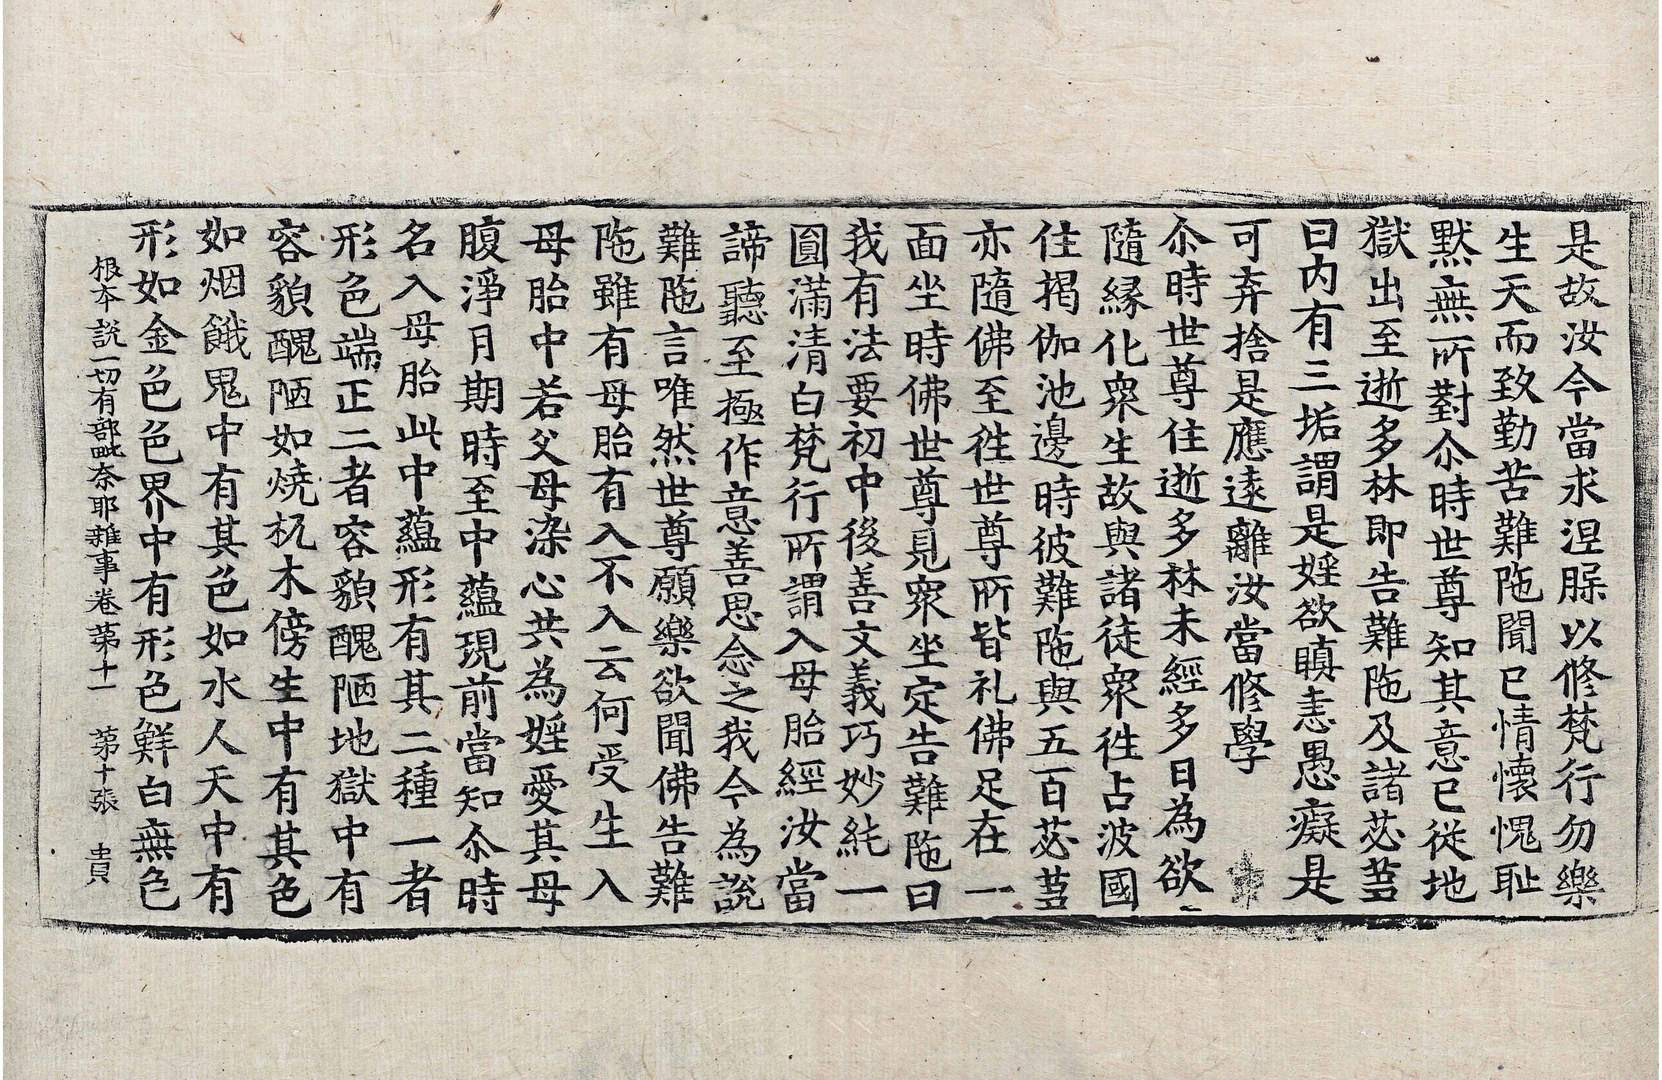 是故汝今當求涅槃以修梵行勿樂
生天而致勤苦難陁聞已情懷愧耻
黙無所對尒時世尊知其意已從地
獄出至逝多林即告難陁及諸苾蒭
曰内有三垢謂是婬欲瞋恚愚癡是
可弃捨是應遠離汝當修學
尒時世尊住逝多林未經多日為欲
隨縁化衆生故與諸徒衆徃占波國
住揭伽池邊時彼難陁與五百苾蒭
亦隨佛至徃世尊所皆礼佛足在一
面坐時佛世尊見衆坐定告難陁曰
我有法要初中後善文義巧妙純一
圓滿清白梵行所謂入母胎經汝當
諦聽至極作意善思念之我今為說
難陁言唯然世尊願樂欲聞佛告難
陁雖有母胎有入不入云何受生入
母胎中若父母染心共為婬愛其母
腹淨月期時至中蘊現前當知尒時
名入母胎此中蘊形有其二種一者
形色端正二者容貌醜陋地獄中有
容貌醜陋如燒杌木傍生中有其色
如烟餓鬼中有其色如水人天中有
形如金色色界中有形色鮮白無色
根本說一切有部毗奈耶雜事卷苐十一 苐十張 貴